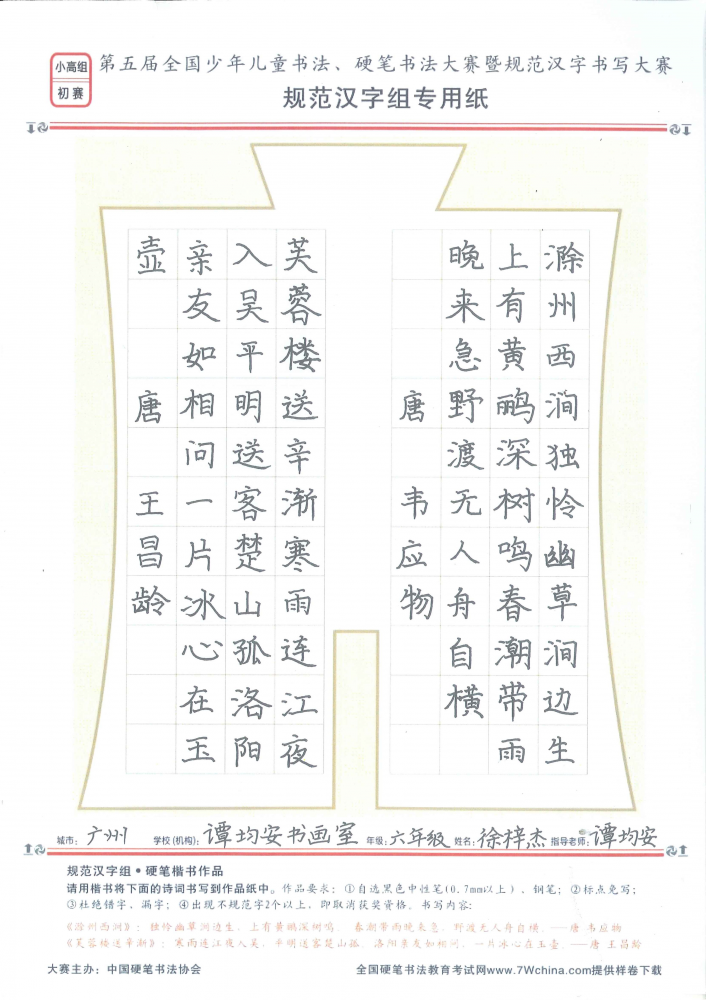 小高组
初赛
第五届全国少年儿童书法、硬笔书法大赛暨规范汉字书写大赛
规范汉字组专用纸
滁州西涧独怜幽草涧边生
上有黄鹂深树鸣春潮带雨
晚来急野渡无人舟自横
唐 韦应物
芙蓉楼送辛渐寒雨连江夜
入吴平明送客楚山孤洛阳
亲友如相问一片冰心在玉
壶 唐 王昌龄
城市：广州 学校(机构)：谭均安书画室 年级：六年级 姓名：徐梓杰 指导老师：谭均安
规范汉字组•硬笔楷书作品
请用楷书将下面的诗词书写到作品纸中。作品要求：①自选黑色中性笔(0.7mm以上)、钢笔；②标点免写；
③杜绝错字、漏字；④出现不规范字2个以上，即取消获奖资格。书写内容：
《滁州西涧》：独怜幽草涧边生，上有黄鹂深树鸣。春潮带雨晚来急，野渡无人舟自横。——唐 韦应物
《芙蓉楼送辛渐》：寒雨连江夜入吴，平明送客楚山孤。洛阳亲友如相问，一片冰心在玉壶。——唐 王昌龄
大赛主办：中国硬笔书法协会 全国硬笔书法教育考试网www.7Wchina.com提供样卷下载